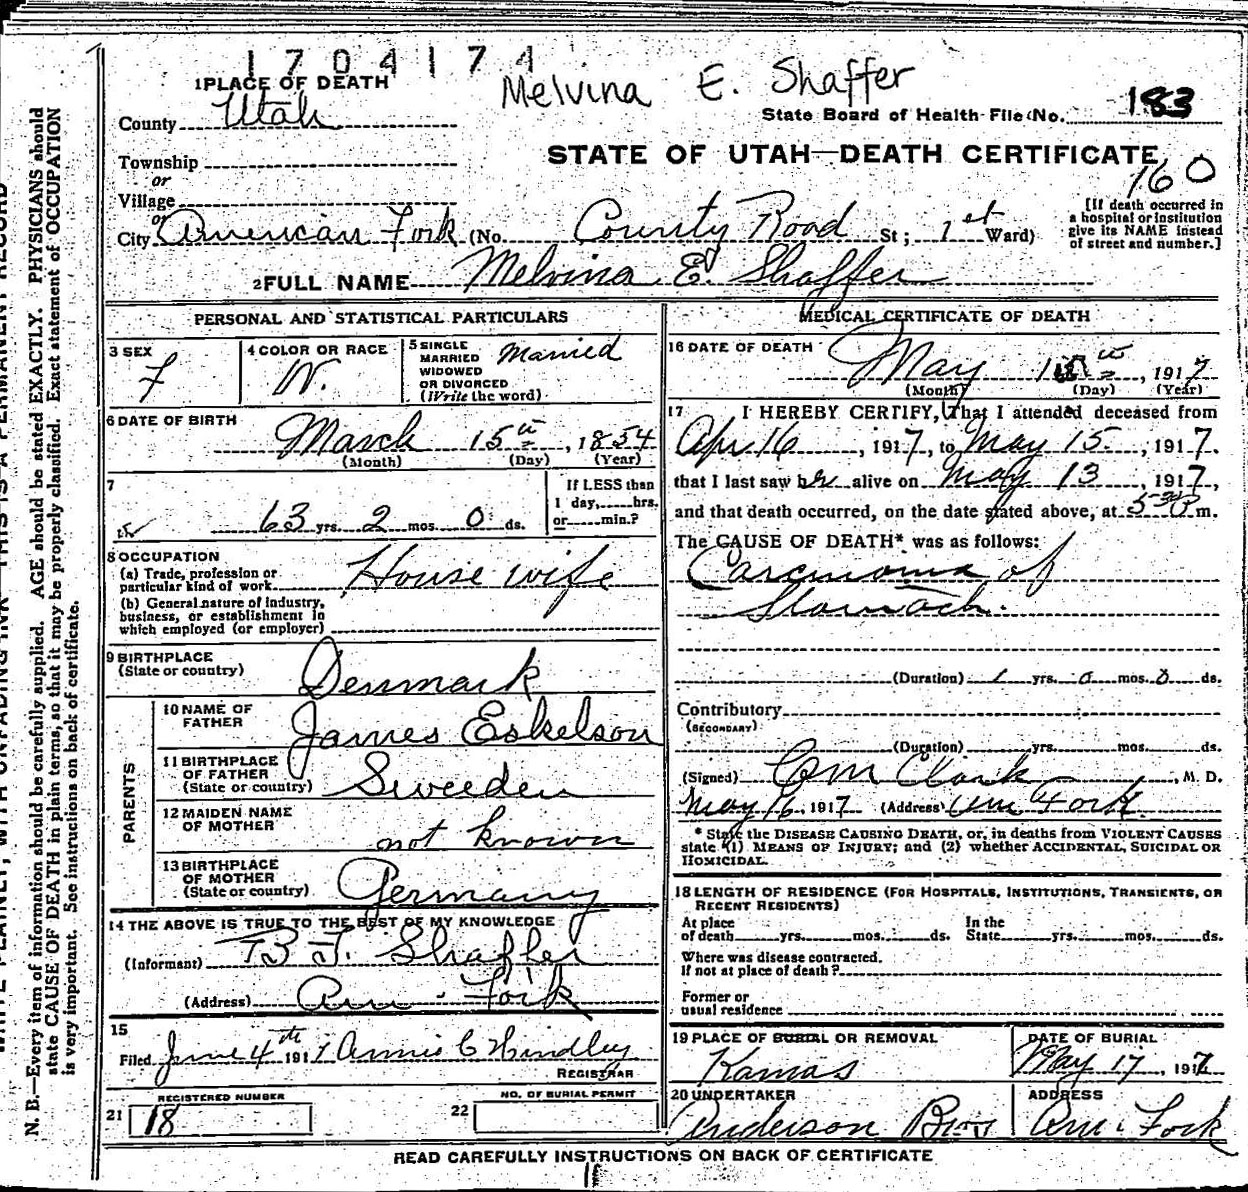 1704174
Melvina E. Shaffer
1 PLACE OF DEATH
County Utah
State Board of Health File No. 183
Township
STATE OF UTAH—DEATH CERTIFICATE
160
or
Village
or
City American Fork (No. County Road St; 1st Ward)
[If death occurred in
a hospital or institution
give its NAME instead
of street and number.]
2 FULL NAME Melvina E. Shaffer
PERSONAL AND STATISTICAL PARTICULARS
3 SEX
F
4 COLOR OR RACE
W.
5 SINGLE
MARRIED
WIDOWED
OR DIVORCED
(Write the word)
Married
6 DATE OF BIRTH
March 15th, 1854
(Month) (Day) (Year)
7
63 yrs. 2 mos. 0 ds.
If LESS than
1 day, hrs.
or min.?
8 OCCUPATION
(a) Trade, profession or
particular kind of work House wife
(b) General nature of industry,
business, or establishment in
which employed (or employer)
9 BIRTHPLACE
(State or country) Denmark
PARENTS
10 NAME OF
FATHER James Eskelson
11 BIRTHPLACE
OF FATHER
(State or country) Sweeden
12 MAIDEN NAME
OF MOTHER not known
13 BIRTHPLACE
OF MOTHER
(State or country) Germany
14 THE ABOVE IS TRUE TO THE BEST OF MY KNOWLEDGE
(Informant) B J. Shaffer
(Address) Am. Fork
15
Filed June 4th 1917 Annie C Hindley
REGISTRAR
REGISTERED NUMBER
21 18
NO. OF BURIAL PERMIT
22
MEDICAL CERTIFICATE OF DEATH
16 DATE OF DEATH
May 15th, 1917
(Month) (Day) (Year)
17 I HEREBY CERTIFY, That I attended deceased from
Apr. 16, 1917, to May 15, 1917.
that I last saw her alive on May 13, 1917,
and that death occurred, on the date stated above, at 5 30 m.
The CAUSE OF DEATH* was as follows:
Carcinoma of
Stomach.
(Duration) 1 yrs. 0 mos. 0 ds.
Contributory
(SECONDARY)
(Duration) yrs. mos. ds.
(Signed) Clark, M. D.
May 16, 1917 (Address) Am Fork
* State the DISEASE CAUSING DEATH, or, in deaths from VIOLENT CAUSES
state (1) MEANS OF INJURY; and (2) whether ACCIDENTAL, SUICIDAL OR
HOMICIDAL.
18 LENGTH OF RESIDENCE (FOR HOSPITALS, INSTITUTIONS, TRANSIENTS, OR
RECENT RESIDENTS)
At place In the
of death yrs. mos. ds. State yrs. mos. ds.
Where was disease contracted.
if not at place of death?
Former or
usual residence
19 PLACE OF BURIAL OR REMOVAL
Kamas
DATE OF BURIAL
May 17, 1917
20 UNDERTAKER
Anderson Bros
ADDRESS
Am. Fork
READ CAREFULLY INSTRUCTIONS ON BACK OF CERTIFICATE
N. B.—Every item of information should be carefully supplied. AGE should be stated EXACTLY. PHYSICIANS should
state CAUSE OF DEATH in plain terms, so that it may be properly classified. Exact statement of OCCUPATION
is very important. See instructions on back of certificate.